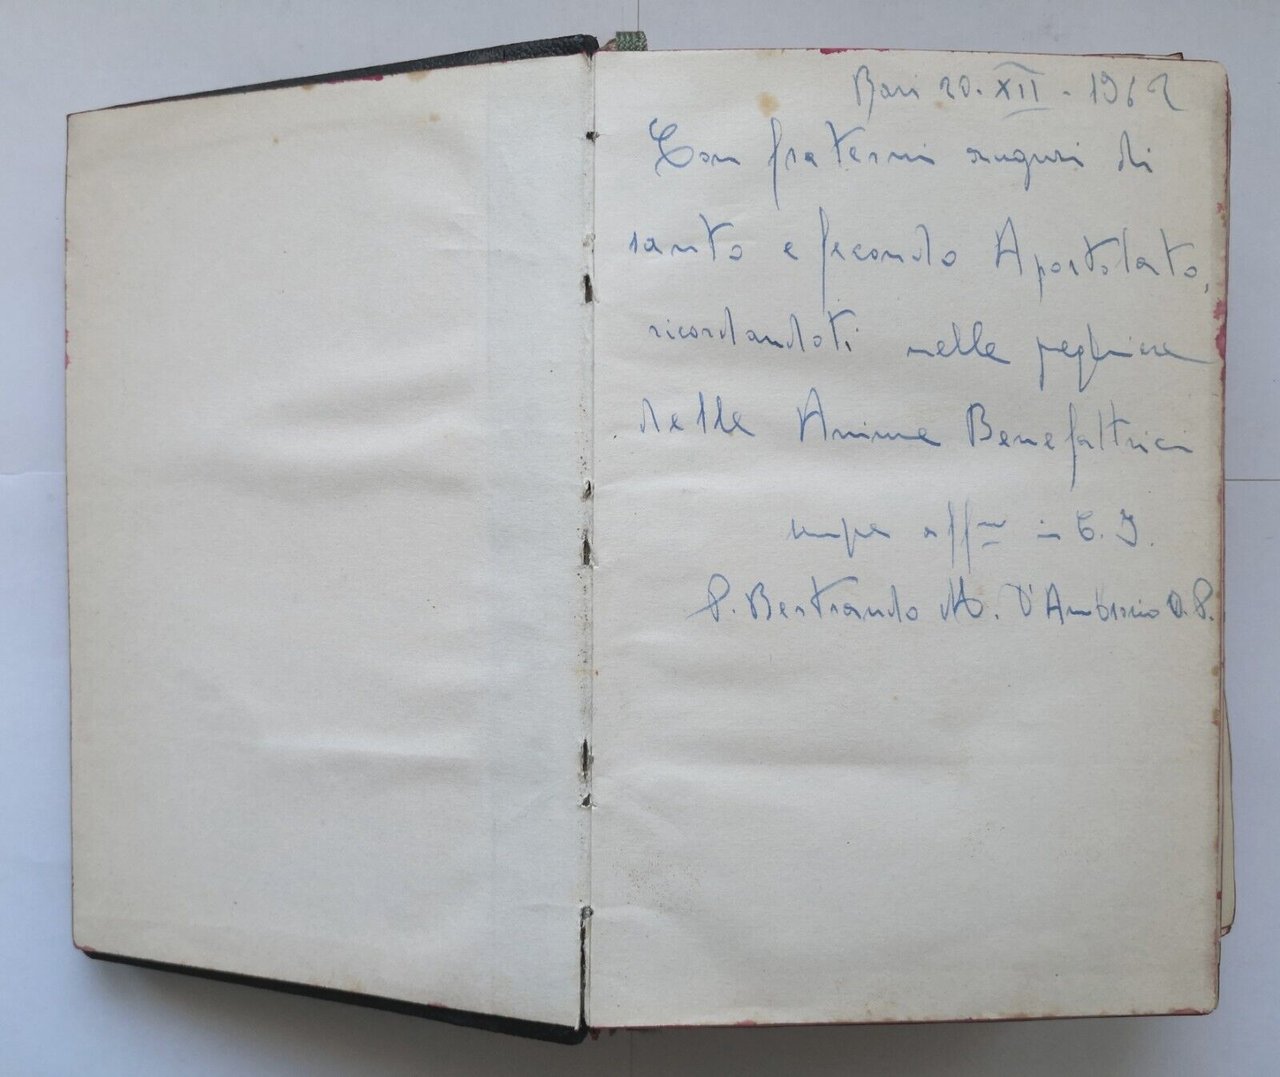 Bari 20 - XII - 1962
Con fraterni auguri di
santo e fecondo Apostolato,
ricordandoti nelle preghiere
delle Anime Benefattrici
sempre aff.mo in C. J.
P. Bertrando M. D'Ambrosio O. P.